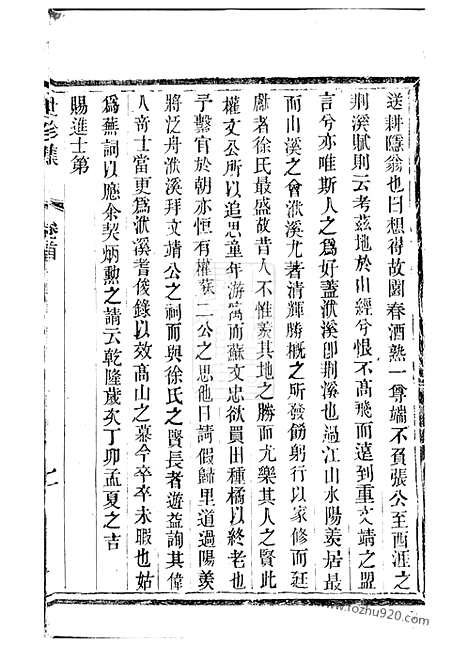 送耕隱翁也曰想得故園春酒熟一尊端不負張公至西涯之
荆溪賦則云考茲地於山經兮恨不髙飛而遠到重文靖之盟
言兮亦唯斯人之爲好蓋洑溪卽荆溪也過江山水陽羨居最
而山溪之會洑溪尤著清輝勝概之所發飭躬行以家修而廷
獻者徐氏最盛故昔人不惟羨其地之勝而尤樂其人之賢此
權文公所以追思童年游篤而蘇文忠欲買田種橘以終老也
予繫官於朝亦恒有權蘇二公之思他日請假歸里道過陽羨
將泛舟洑溪拜文靖公之祠而與徐氏之賢長者遊益詢其偉
人竒士當更爲洑溪耆俊錄以效髙山之慕今卒卒未暇也姑
爲蕪詞以應余契炳勲之請云乾隆歲次丁卯孟夏之吉
賜進士第
世彩集
卷首
www.fozhu920.com